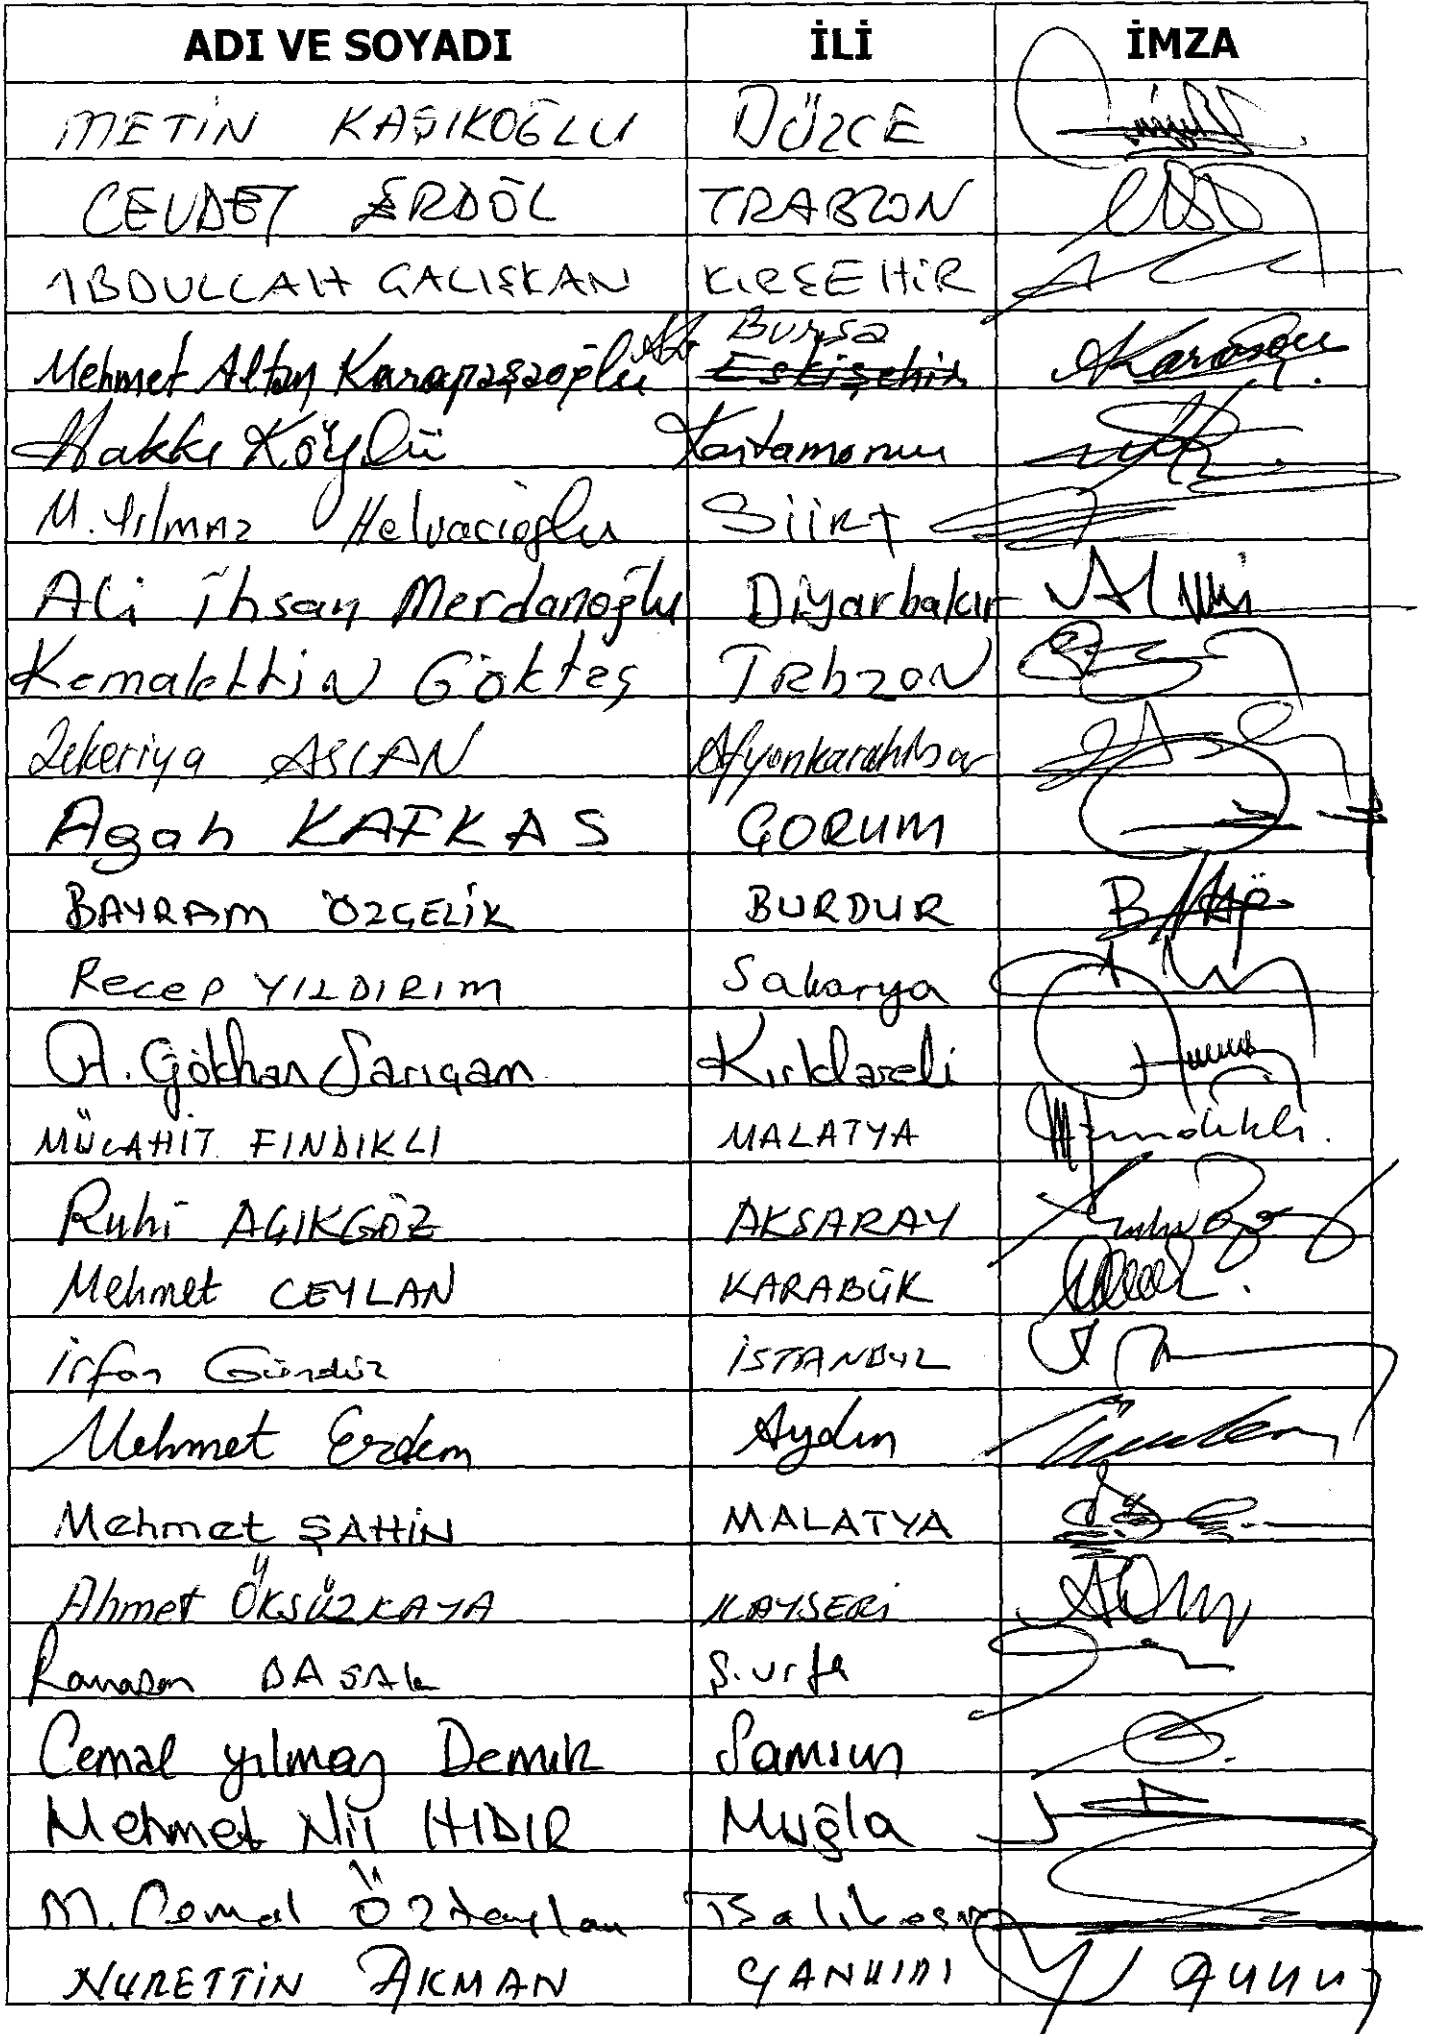 ADI VE SOYADI İLİ İMZA
METİN KAŞIKOĞLU DÜZCE
CEVDET ERDÖL TRABZON
ABDULLAH ÇALIŞKAN KIRŞEHİR
Bursa
Mehmet Altan Karapaşaoğlu Eskişehir
Hakkı Köylü Kastamonu
M. Yılmaz Helvacıoğlu Siirt
Ali İhsan Merdanoğlu Diyarbakır
Kemalettin Göktaş Trabzon
Zekeriya ASLAN Afyonkarahisar
Agah KAFKAS ÇORUM
BAYRAM ÖZÇELİK BURDUR
Recep YILDIRIM Sakarya
A. Gökhan Sarıçam Kırklareli
MÜCAHİT FINDIKLI MALATYA
Ruhi AÇIKGÖZ AKSARAY
Mehmet CEYLAN KARABÜK
İrfan Gündüz İSTANBUL
Mehmet Erdem Aydın
Mehmet ŞAHİN MALATYA
Ahmet ÖKSÜZKAYA KAYSERİ
Ramazan BAŞAK Ş.urfa
Cemal Yılmaz Demir Samsun
Mehmet Nil HIDIR Muğla
M. Cemal Öztaylan Balıkesir
NURETTİN AKMAN ÇANKIRI